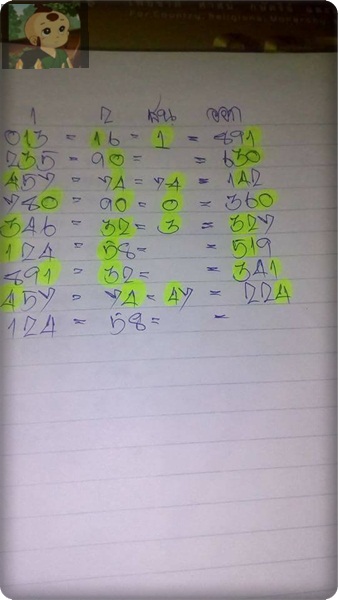 1 2 ชน ออก
013 = 16 = 1 = 891
235 = 90 = = 630
457 = 74 = 74 = 142
780 = 90 = 0 = 360
346 = 32 = 3 = 327
124 = 58 = = 519
891 = 32 = = 341
457 = 74 = 47 = 224
124 = 58 = =